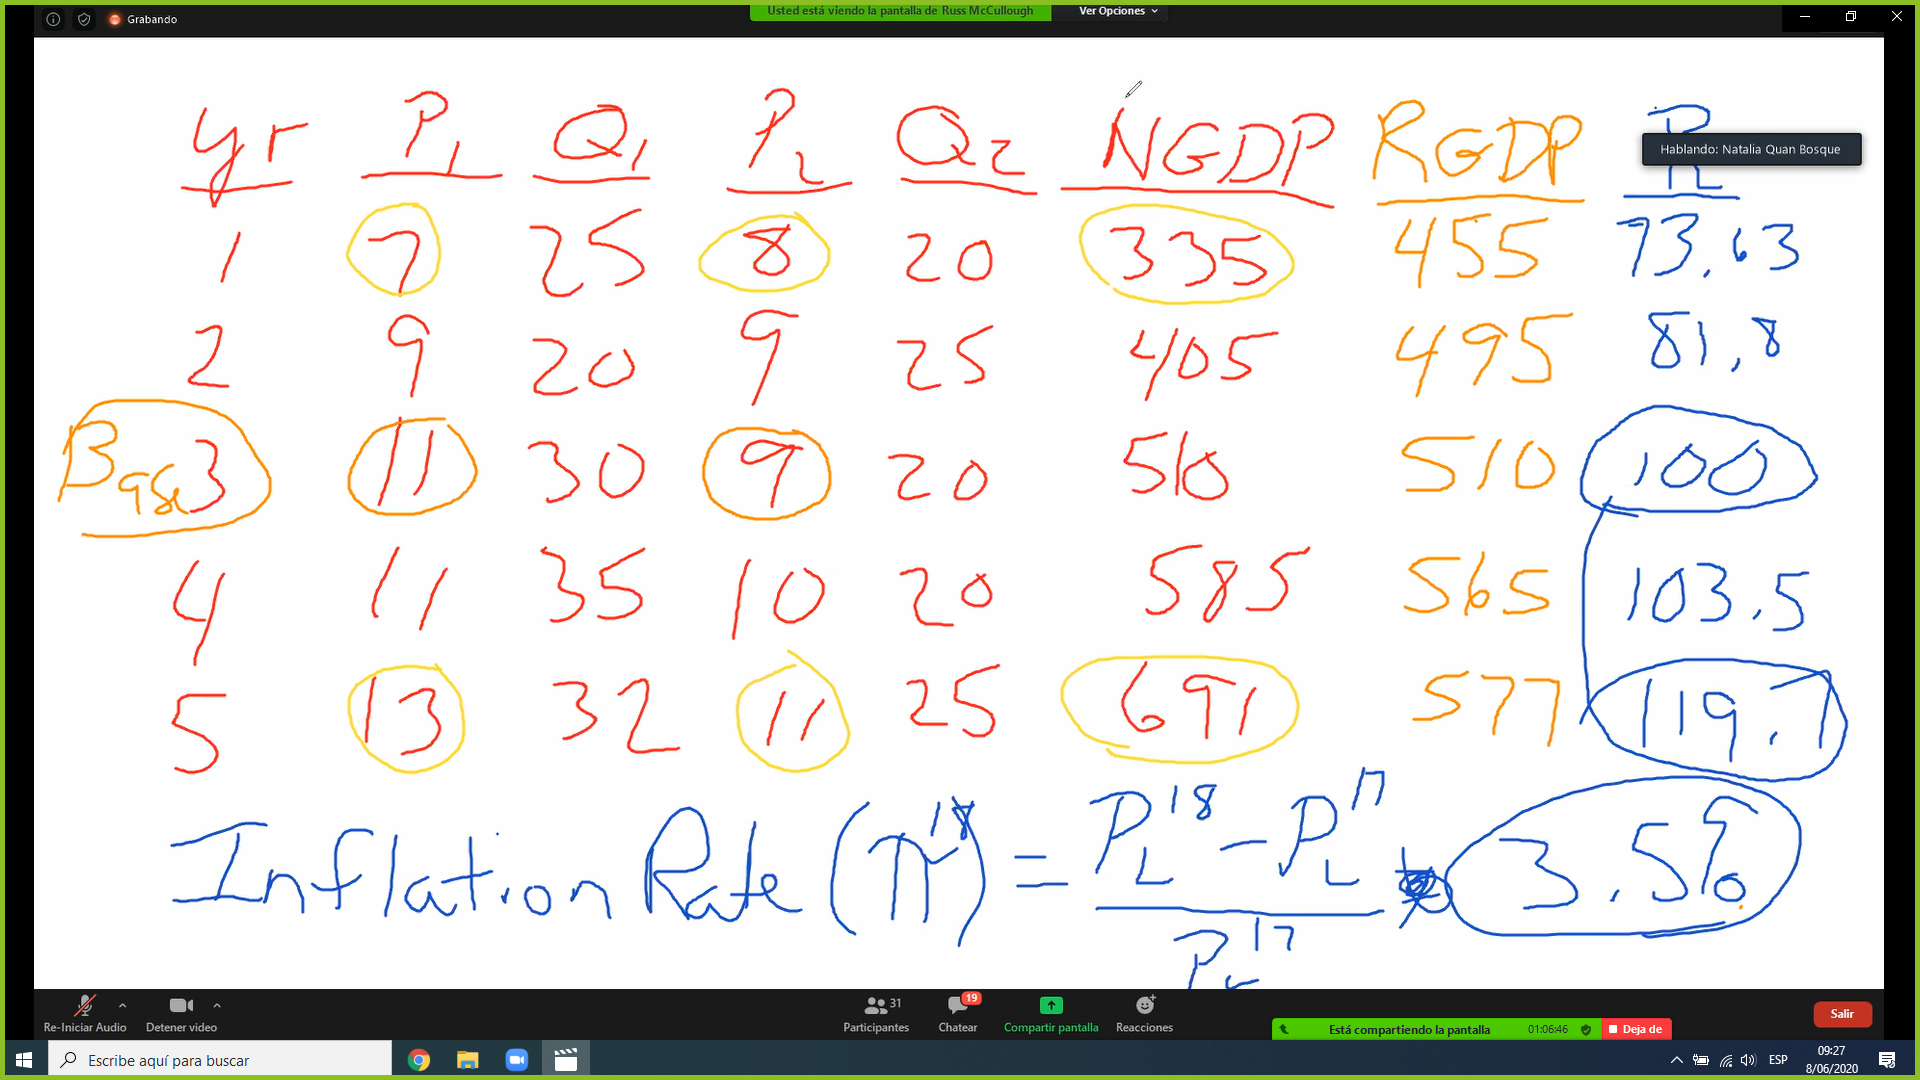 Grabando
Usted está viendo la pantalla de Russ McCullough
Ver Opciones
yr P1 Q1 P2 Q2 NGDP RGDP PL
Hablando: Natalia Quan Bosque
1 7 25 8 20 335 455 73.63
2 9 20 9 25 405 495 81.8
Base 3 11 30 9 20 510 510 100
4 11 35 10 20 585 565 103.5
5 13 32 11 25 691 577 119.7
Inflation Rate (π18) = PL18 - PL17 3.5%
PL17
31
19
Re-Iniciar Audio
Detener video
Participantes
Chatear
Compartir pantalla
Reacciones
Salir
Está compartiendo la pantalla
01:06:46
Deja de
Escribe aquí para buscar
ESP
09:27
8/06/2020